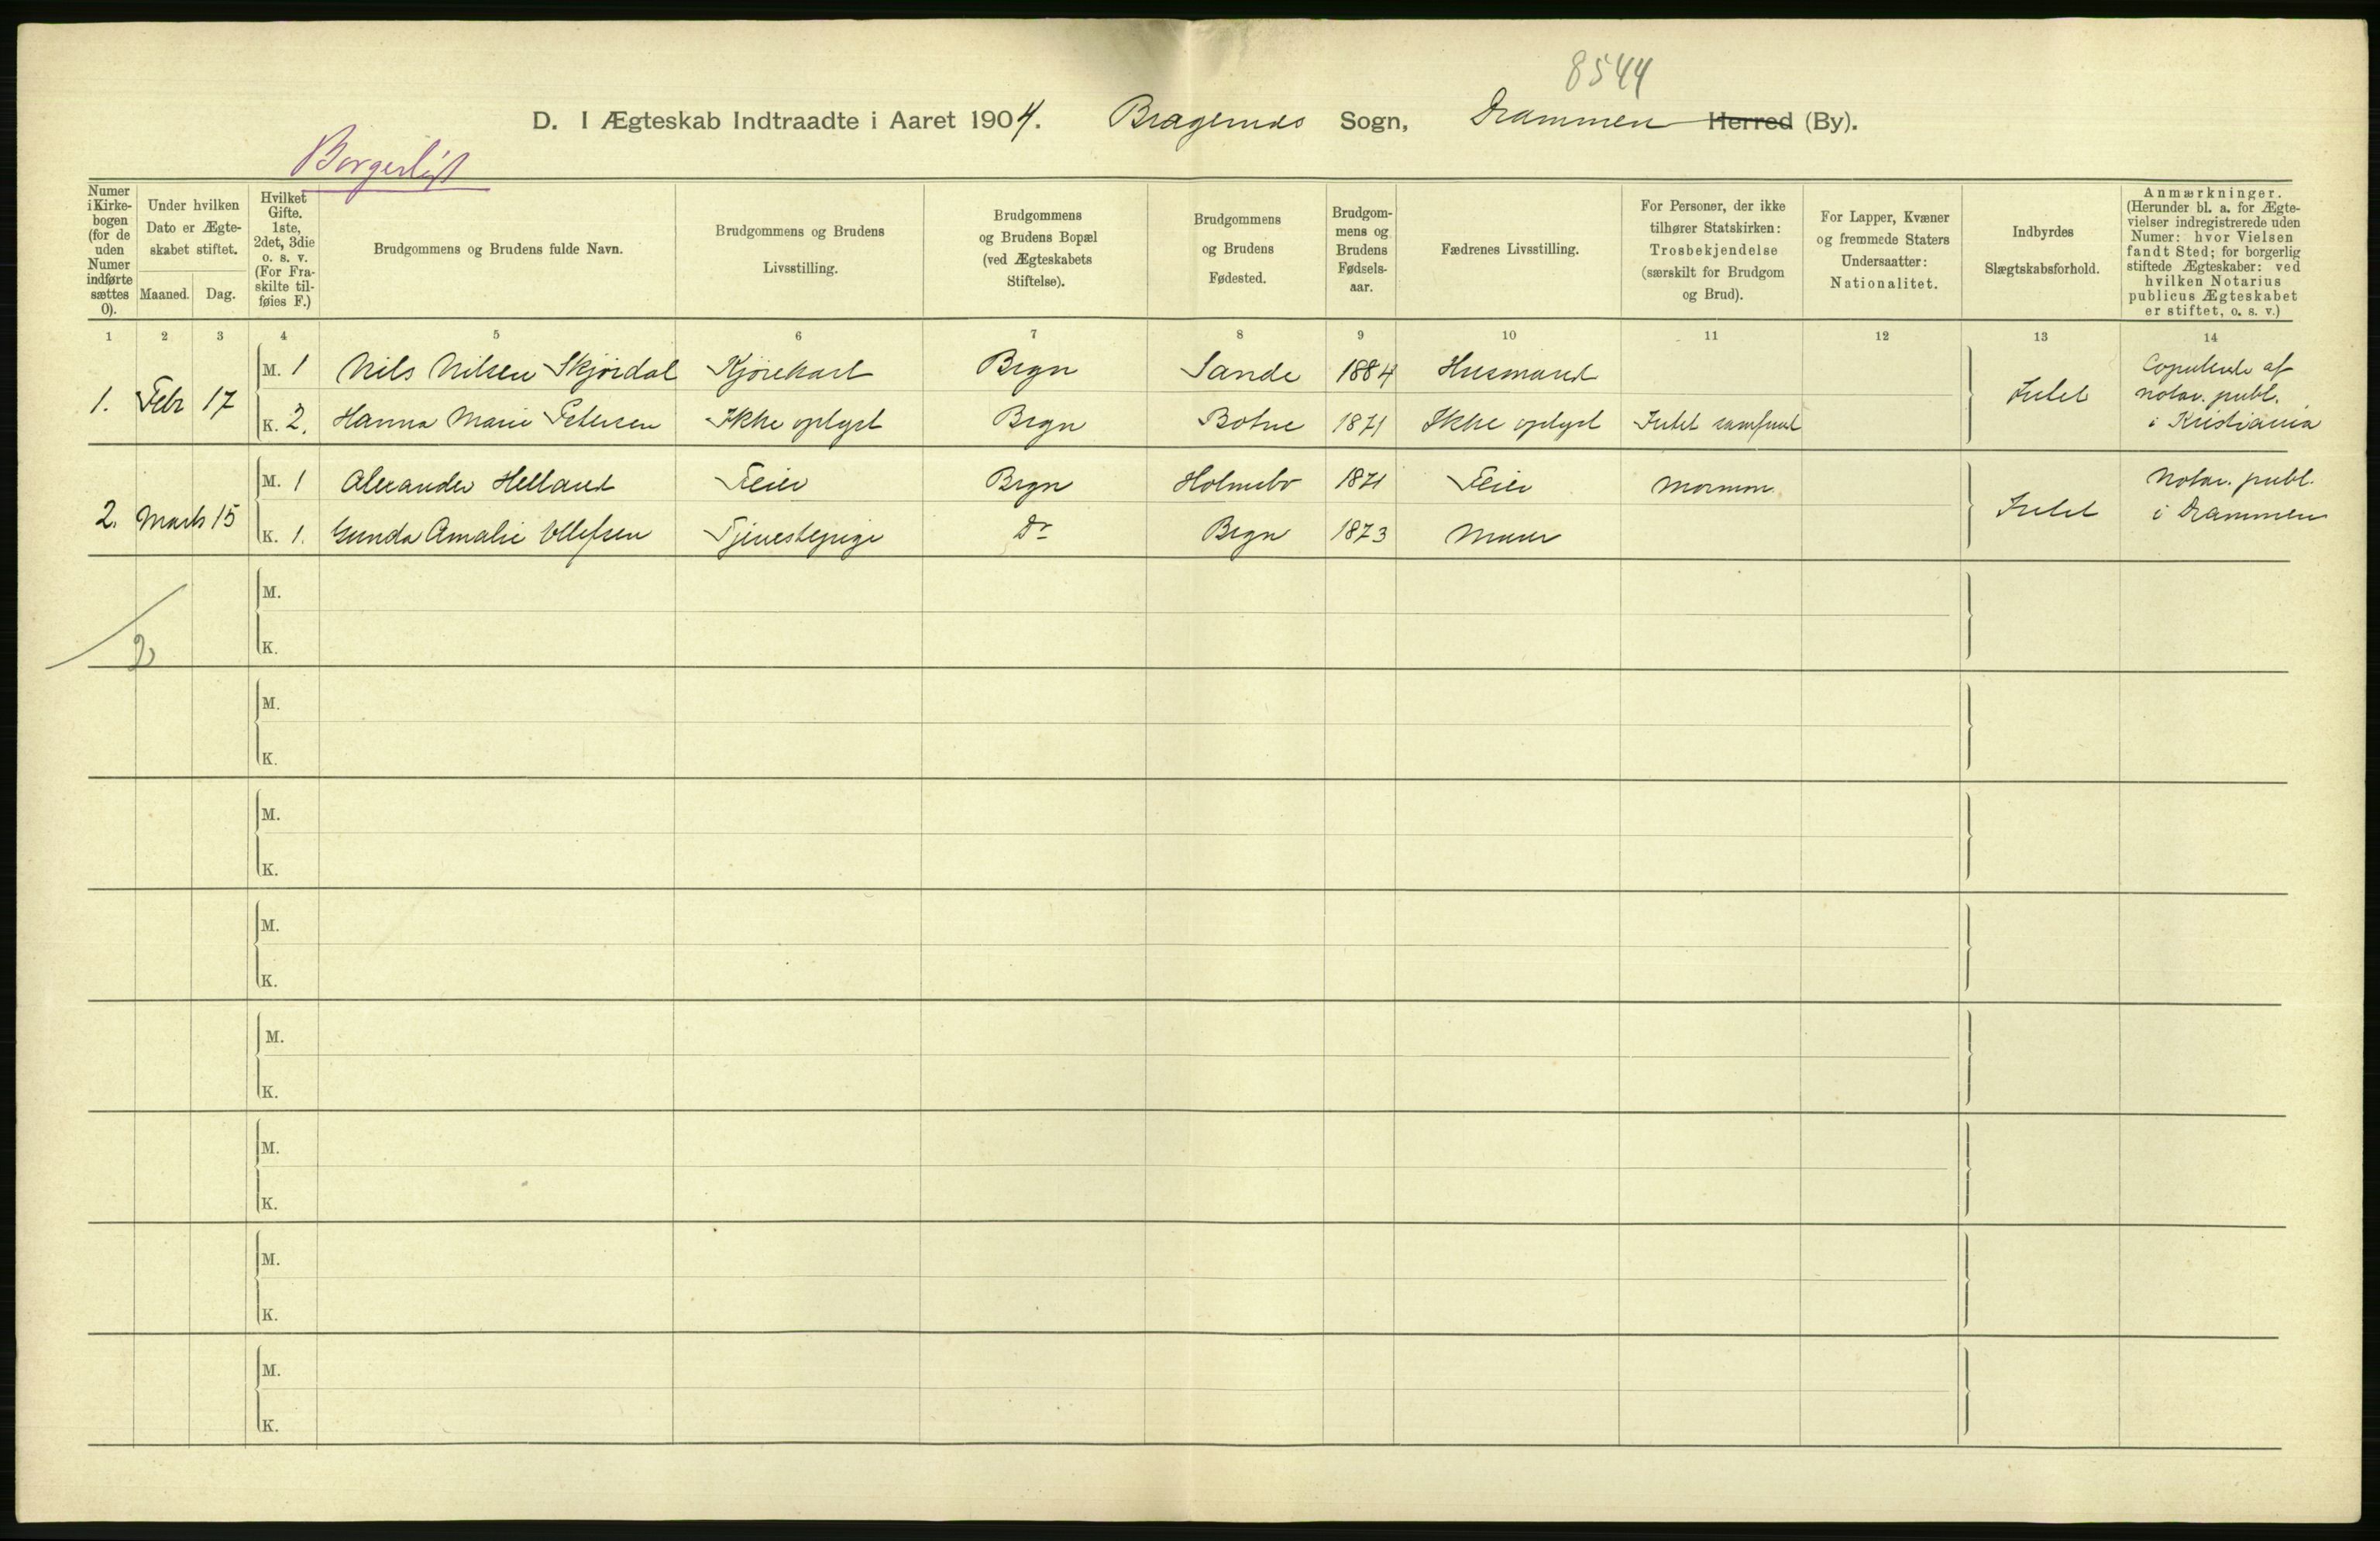 8544
D. I Ægteskab Indtraadte i Aaret 1904. Bragernæs Sogn, Drammen Herred (By).
Borgerligt
Numer i Kirkebogen (for de uden Numer indførte sættes 0).
Under hvilken Dato er Ægteskabet stiftet.
Maaned. Dag.
Hvilket Gifte. 1ste, 2det, 3die o. s. v. (For Fraskilte tilføies F.)
Brudgommens og Brudens fulde Navn.
Brudgommens og Brudens Livsstilling.
Brudgommens og Brudens Bopæl (ved Ægteskabets Stiftelse).
Brudgommens og Brudens Fødested.
Brudgommens og Brudens Fødselsaar.
Fædrenes Livsstilling.
For Personer, der ikke tilhører Statskirken: Trosbekjendelse (særskilt for Brudgom og Brud).
For Lapper, Kvæner og fremmede Staters Undersaatter: Nationalitet.
Indbyrdes Slægtskabsforhold.
Anmærkninger. (Herunder bl. a. for Ægtevielser indregistrerede uden Numer: hvor Vielsen fandt Sted; for borgerlig stiftede Ægteskaber: ved hvilken Notarius publicus Ægteskabet er stiftet, o. s. v.)
1 2 3 4 5 6 7 8 9 10 11 12 13 14
1. Febr 17 M. 1 Nils Nilsen Skjørdal Kjørekarl Brgn Sande 1884 Husmand Intet Copulerede af notar. publ. i Kristiania
K. 2. Hanna Marie Petersen Ikke oplyst Brgn Botne 1871 Ikke oplyst Intet samfund
2. Marts 15 M. 1 Alexander Helland Feier Brgn Holmsbo 1871 Feier Mormon Intet Notar. publ. i Drammen
K. 1. Gunda Amalie Ellefsen Tjenestepige Do Brgn 1873 Murer
M.
K.
2
M.
K.
M.
K.
M.
K.
M.
K.
M.
K.
M.
K.
M.
K.